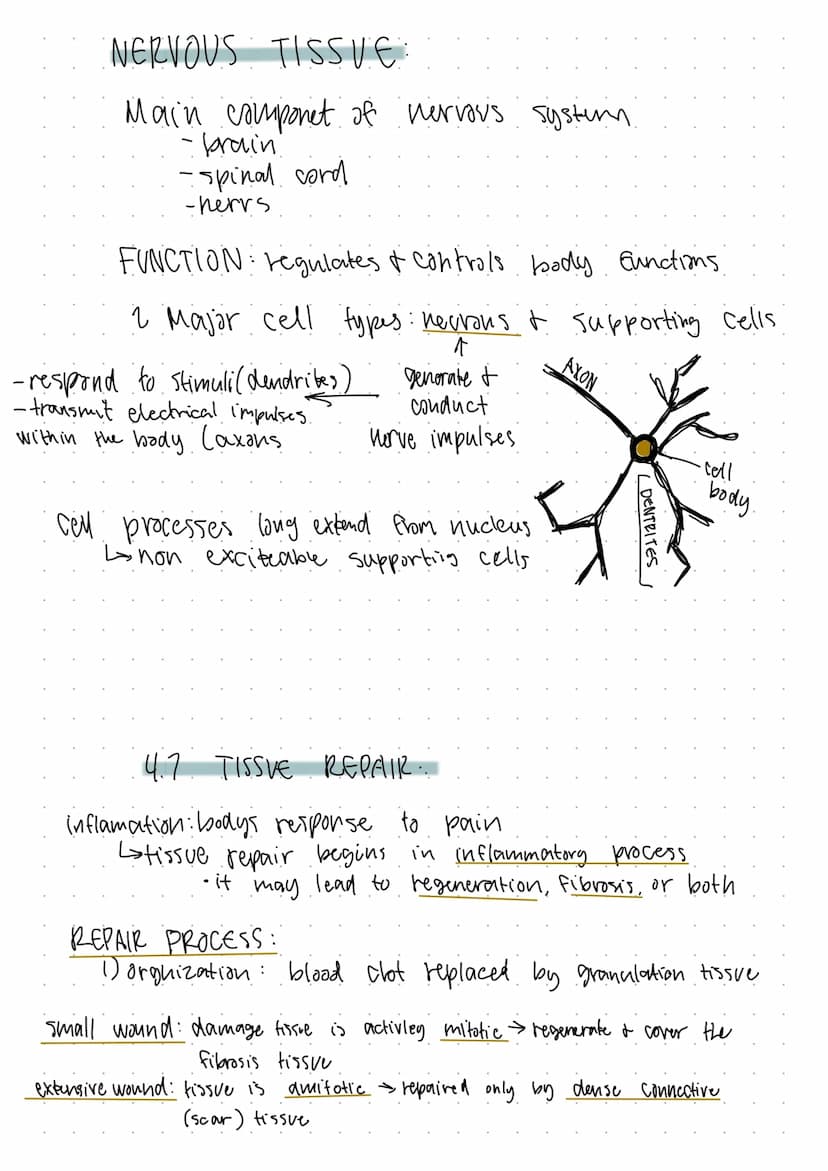 NERVOUS TISSUE:
Main componet of nervous system
- brain
- spinal cord
- nervs
FUNCTION: regulates & controls body functions
2 Major cell types: neurons & supporting cells
- respond to stimuli (dendrites)
- transmit electrical impulses
within the body (axons
generate &
conduct
nerve impulses
AXON
cell
body
DENTRITES
cell processes long extend from nucleus
↳ non exciteable supporting cells
4.7 TISSUE REPAIR:
inflamation: bodys response to pain
↳ tissue repair begins in inflammatory process
• it may lead to regeneration, fibrosis, or both
REPAIR PROCESS:
1) orgnization: blood clot replaced by granulation tissue
small wound: damage tissue is activley mitotic → regenerate & cover the
fibrosis tissue
extensive wound: tissue is amitotic → repaired only by dense connective
(scar) tissue